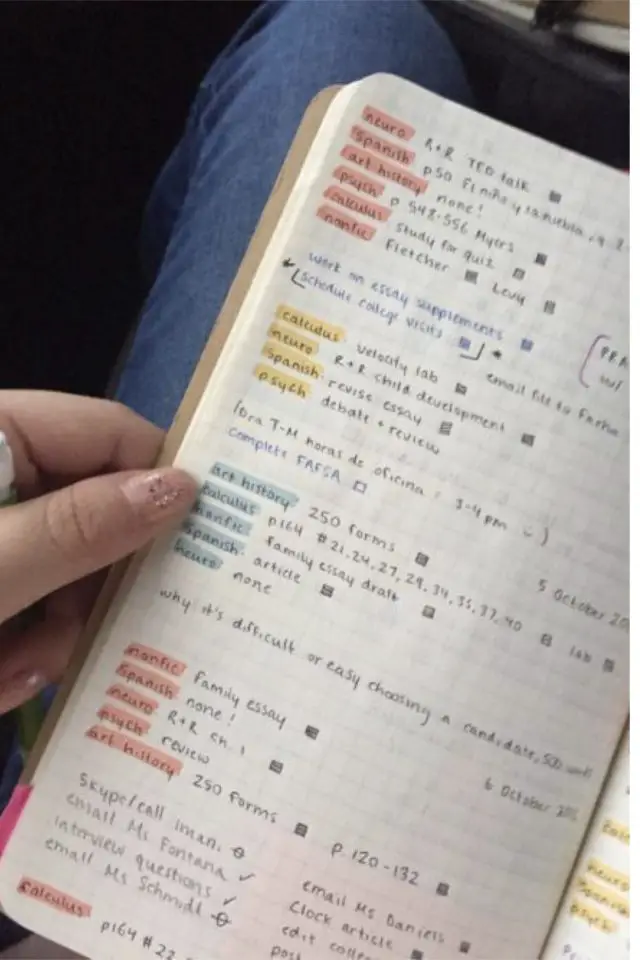 neuro R+R TED talk
spanish p50 El niño y la niebla, 9
art history none!
psych p 548-556 Myers
calculus study for quiz
nonfic Fletcher Levy
work on essay supplements
schedule college visits
email file to Farha
calculus velocity lab
neuro R+R child development
spanish revise essay
psych debate + review
lora T-M horas de oficina : 3-4 pm :)
complete FAFSA
art history 250 forms
calculus p164 #21,24,27,29,34,35,37,40 lab
nonfic family essay draft
spanish article
neuro none
5 October
why it's difficult or easy choosing a candidate, 500 words
nonfic family essay
spanish none!
neuro R+R ch. 1
psych review
art history 250 forms p. 120-132
6 October
skype/call Iman
email Ms Fontana ✓
interview questions ✓
email Ms Schmidt
email Ms Daniels
clock article
edit
post
calculus p164 #22
neuro
spanish
psych